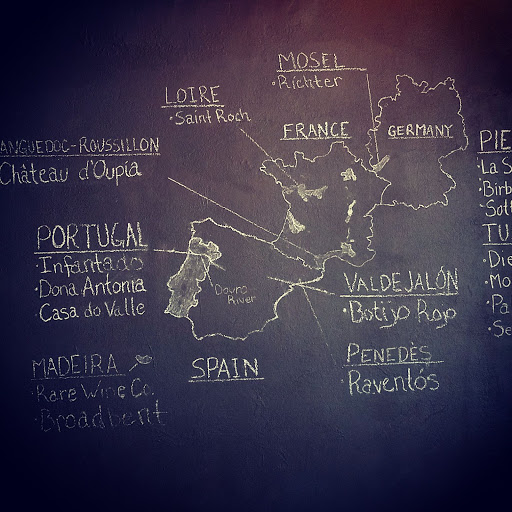 MOSEL
·Richter
LOIRE
·Saint Roch
FRANCE
GERMANY
ANGUEDOC-ROUSSILLON
Château d'Oupia
PORTUGAL
·Infantado
·Dona Antonia
·Casa do Valle
Douro
River
MADEIRA
·Rare Wine Co.
·Broadbent
SPAIN
VALDEJALÓN
·Botijo Rojo
PENEDÈS
·Raventós
PIE
·La S
·Birb
·Sott
TU
·Die
·Mo
·Pa
·Se